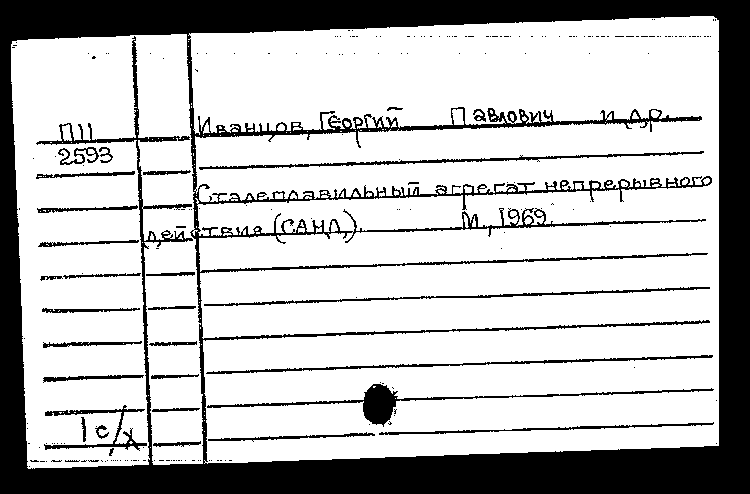 П11 Иванцов, Георгий Павлович и др.
2593
Сталеплавильный агрегат непрерывного
действия (САНД). М., 1969.
1 с/х